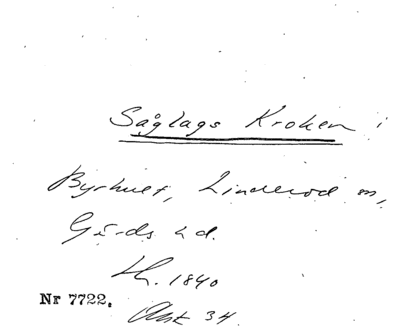 Såglags Kroken i
Byrhult, Linderöd sn,
Gärds hd.
th. 1840
Nr 7722. Ask 34